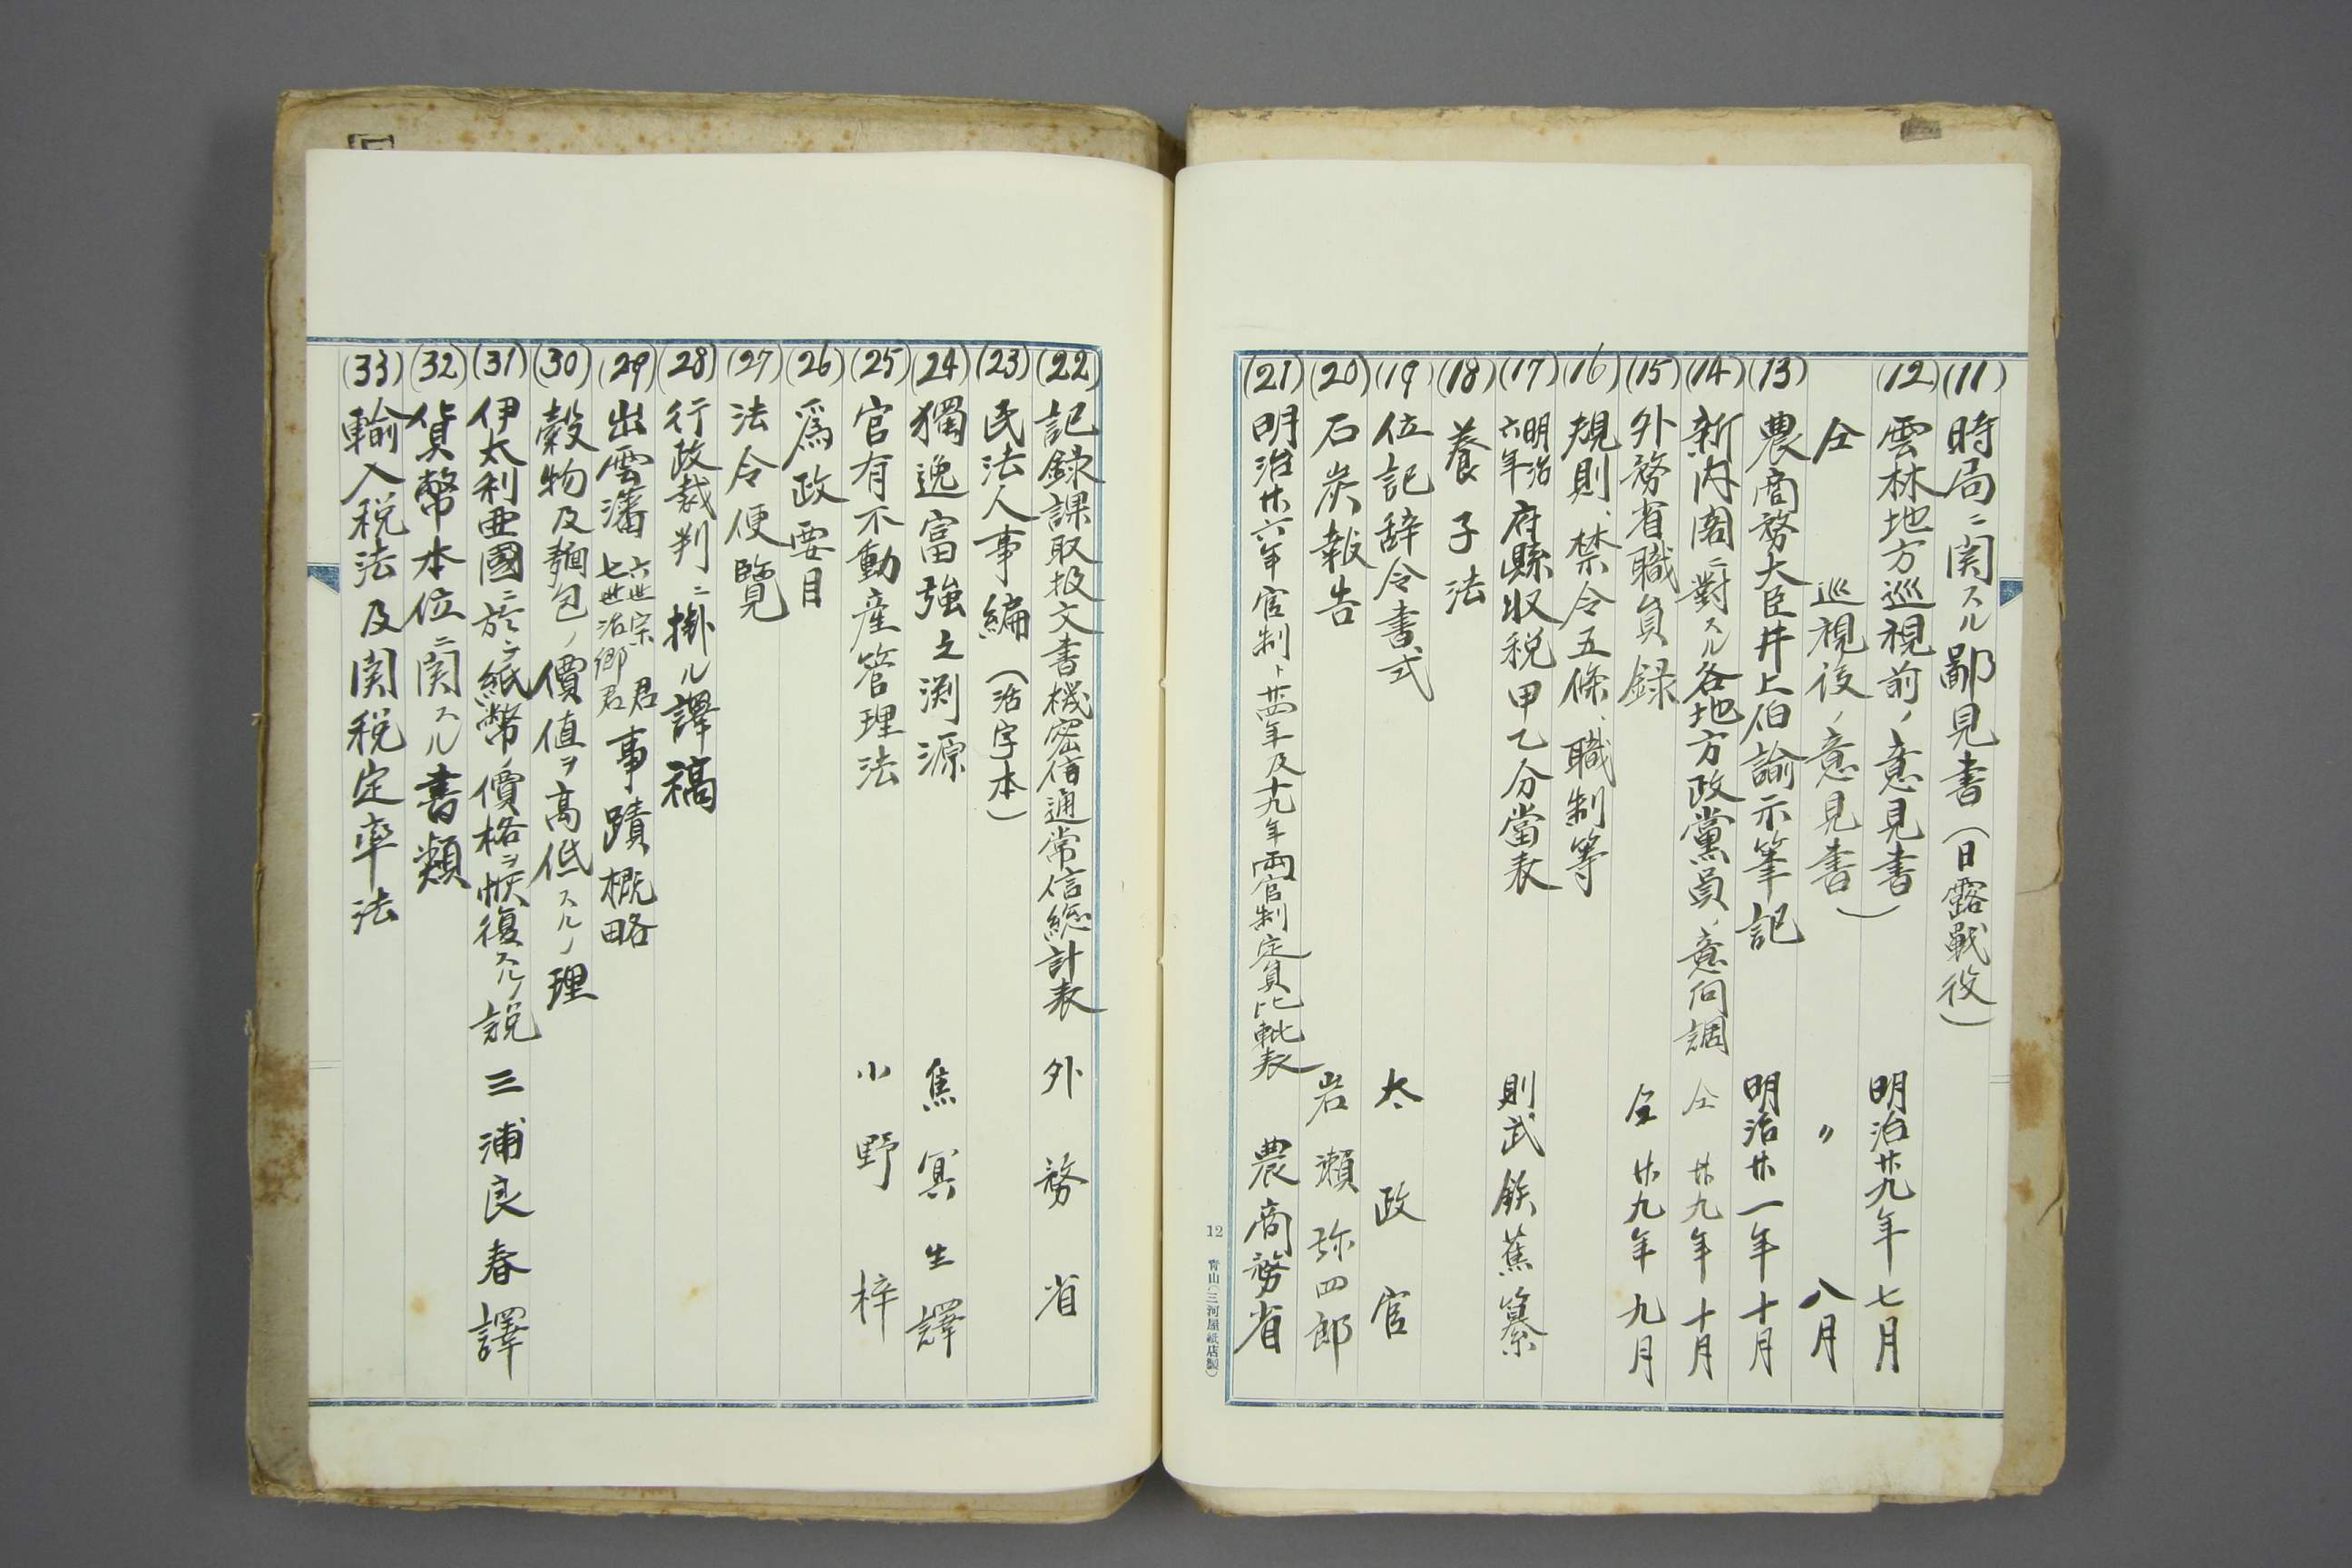 (11) 時局ニ関スル鄙見書（日露戰役）
(12) 雲林地方巡視前ノ意見書） 明治廿九年七月
仝 巡視後ノ意見書） 〃 八月
(13) 農商務大臣井上伯諭示筆記 明治廿一年十月
(14) 新内閣ニ對スル各地方政黨員ノ意向調 仝 廿九年十月
(15) 外務省職員録 仝 廿九年九月
(16) 規則、禁令五條、職制等
(17) 明治六年 府縣収税甲乙分當表 則武鉄蕉纂
(18) 養子法
(19) 位記辞令書式 太政官
(20) 石炭報告 岩瀬弥四郎
(21) 明治廿六年官制ト廿四年及十九年両官制定員比較表 農商務省
12 青山（三河屋紙店製）
(22) 記録課取扱文書機密信通常信総計表 外務省
(23) 民法人事編（活字本）
(24) 獨逸富強之渕源 焦冥生譯
(25) 官有不動産管理法 小野梓
(26) 為政要目
(27) 法令便覽
(28) 行政裁判ニ掛ル譯稿
(29) 出雲藩 六世宗 君 七世治郷君 事蹟概略
(30) 穀物及麺包ノ價値ヲ高低スルノ理
(31) 伊太利亜國ニ於テ紙幣ノ價格ヲ恢復スルノ説 三浦良春譯
(32) 貨幣本位ニ関スル書類
(33) 輸入税法及関税定率法